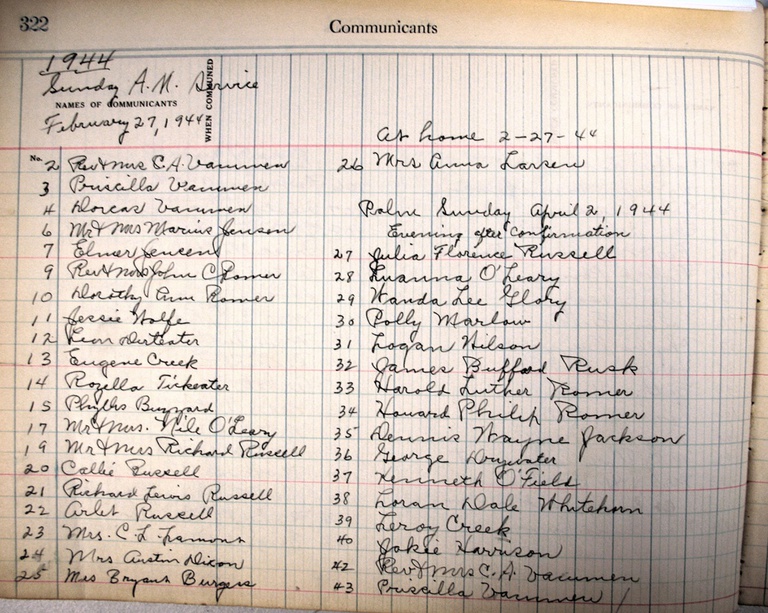 322
Communicants
1944
Sunday A.M. Service
NAMES OF COMMUNICANTS
WHEN COMMUNED
February 27, 1944
No. 2 Rev & Mrs C. A. Vammen
3 Priscilla Vammen
4 Dorcas Vammen
6 Mr & Mrs Marius Jensen
7 Elmer Jensen
9 Rev & Mrs John C Romer
10 Dorothy Ann Romer
11 Jessie Wolfe
12 Leon Dirteater
13 Eugene Creek
14 Rozella Tickeater
15 Phyllis Buzzard
17 Mr & Mrs. Nile O'Leary
19 Mr & Mrs Richard Russell
20 Callie Russell
21 Richard Lewis Russell
22 Arlet Russell
23 Mrs. C. L. Lamont
24 Mrs Austin Dixon
25 Mrs Bryant Burgess
At home 2-27-44
26 Mrs Anna Larsen
Palm Sunday April 2, 1944
Evening after Confirmation
27 Julia Florence Russell
28 Luanna O'Leary
29 Wanda Lee Glory
30 Polly Marlow
31 Logan Wilson
32 James Bufford Rusk
33 Harold Luther Romer
34 Howard Philip Romer
35 Dennis Wayne Jackson
36 George Drywater
37 Kenneth O'Field
38 Loran Dale Whitehorn
39 Leroy Creek
40 Jakie Harrison
42 Rev & Mrs C. A. Vammen
43 Priscilla Vammen